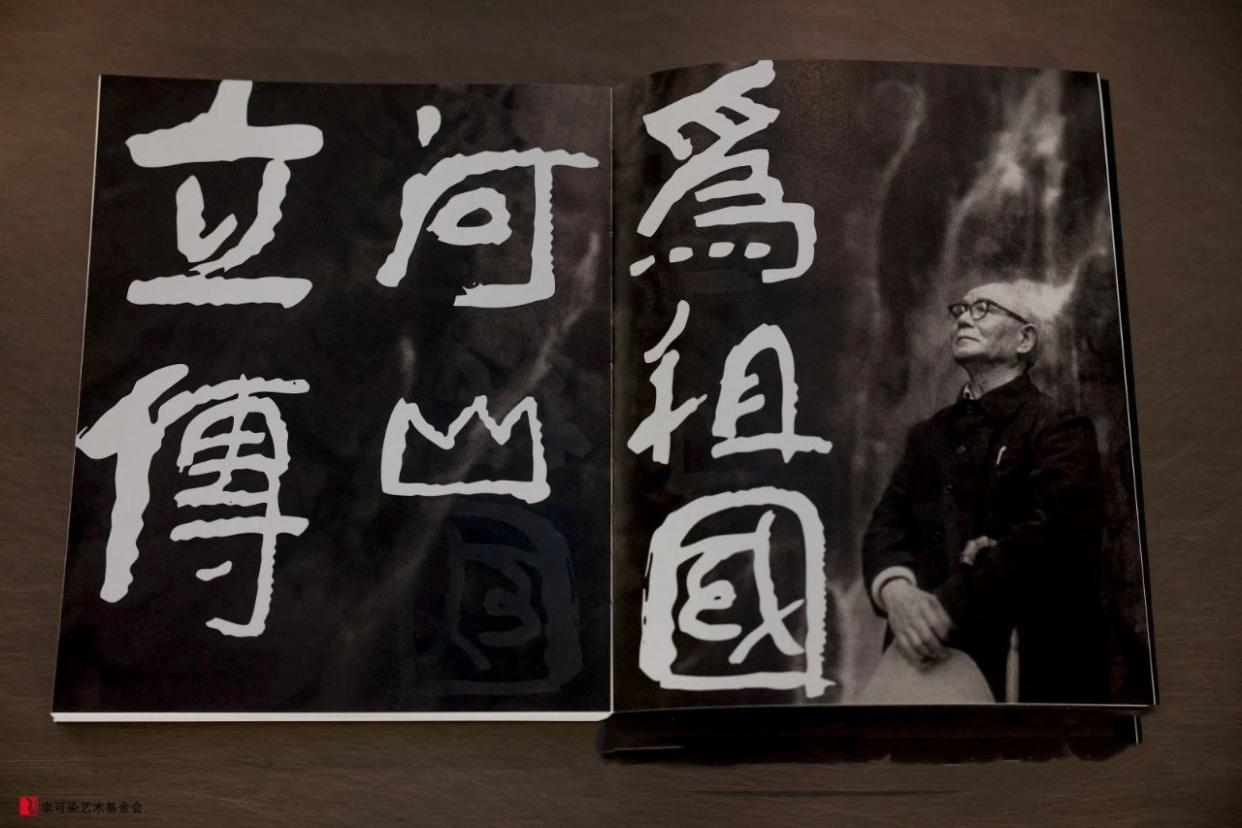 爲祖國
河山
立傳
李可染艺术基金会